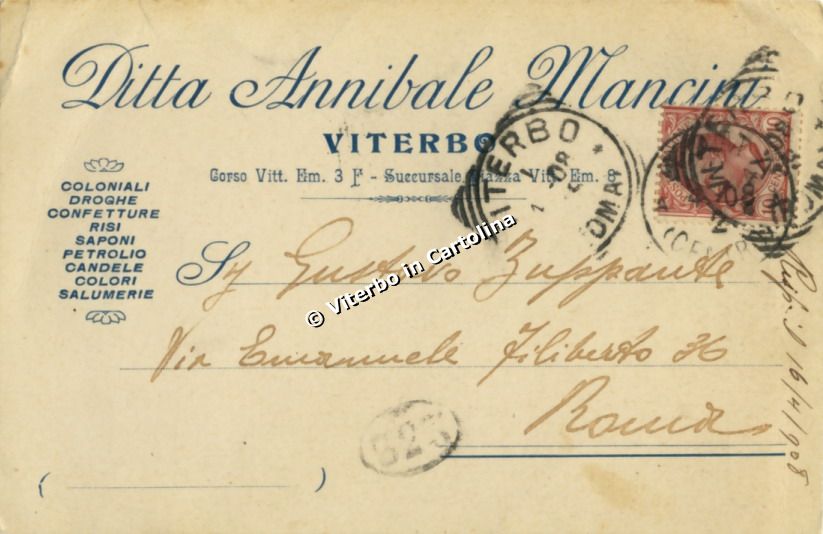 Ditta Annibale Mancini
VITERBO
Corso Vitt. Em. 3 F - Succursale Piazza Vitt. Em. 8
COLONIALI
DROGHE
CONFETTURE
RISI
SAPONI
PETROLIO
CANDELE
COLORI
SALUMERIE
VITERBO
ROMA
08
10
Sg Gustavo Zuppante
Via Emanuele Filiberto 36
Roma
© Viterbo in Cartolina
823
16/4/908
( )